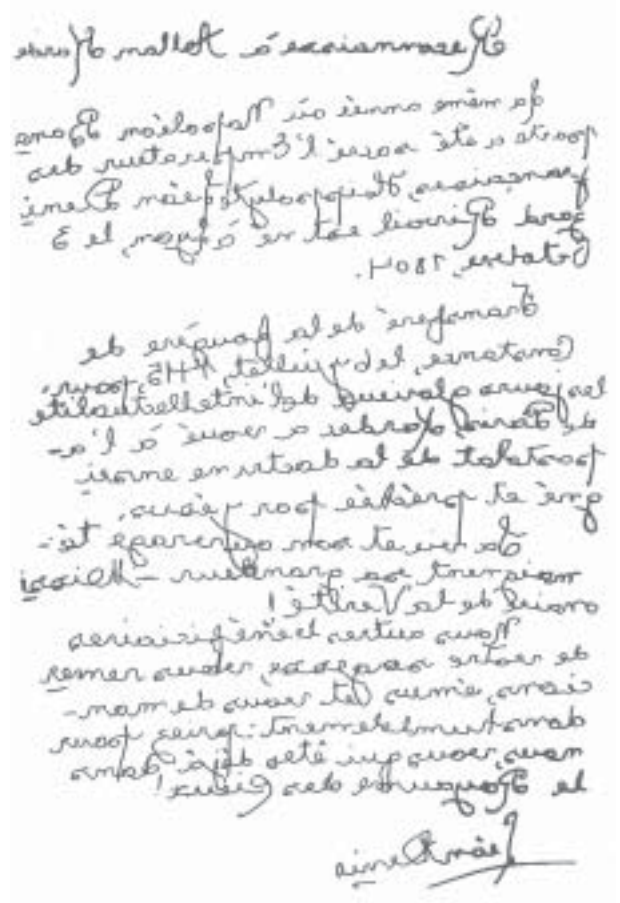 Reconnaissance à Allan Kardec
La même année où Napoléon Bona
parte a été sacré l'Empereur des
français, Hippolyte Léon Deni
zard Rivail est né à Lyon, le 3
Octobre, 1804.
Transferé de la de
Constance, le 6 juillet, 1415, pour
les jours glorieux de l'intellectualité
de Paris, Kardec a voué à l'a-
postolat de la doctrine ensei
gné et prêchée par Jésus.
Sa vie et son ouvrage té-
moignent sa grandeur – Missi
de la Verité!
Nous autres bénéficiaires
de votre sagesse, nous remer
cions, émus. Et nous deman-
dons humblement: priez pour
nous, vous qui êtes déjà dans
le Royaume des Cieux!
Léon Denis